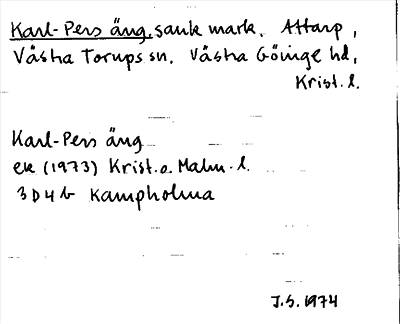 Karl-Pers äng, sank mark. Attarp,
Västra Torups sn. Västra Göinge hd,
Krist. l.
Karl-Pers äng
ek (1973) Krist. o. Malm. l.
3D4b Kampholma
J.S. 1974